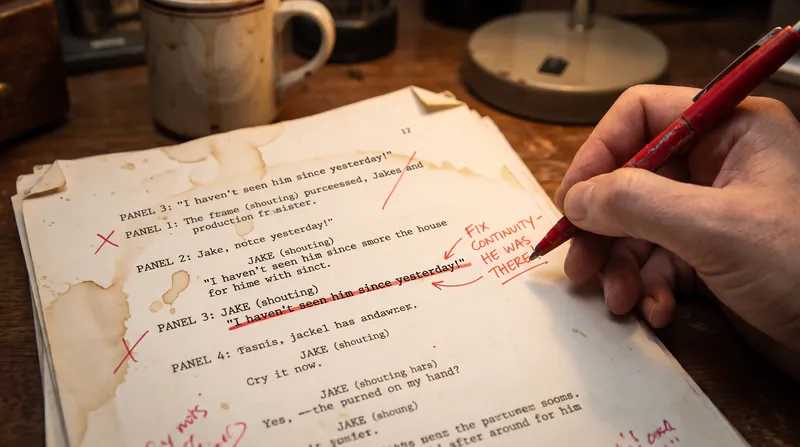 12
PANEL 3: "I haven't seen him since yesterday!"
PANEL 1: The frame (shouting) purceessed, Jakes and
production sister.
PANEL 2: Jake, notce yesterday!"
JAKE (shouting)
"I haven't seen him since smore the house
for hime with sinct.
PANEL 3: JAKE (shouting)
"I haven't seen him since yesterday!"
FIX
CONTINUITY-
HE WAS
THERE
PANEL 4: Tasnis, jackel has andawrex.
JAKE (shouting)
Cry it now.
JAKE (shouting hars)
Yes, —the purned on my hand?
JAKE (shoung)
the partumes sooms.
after around for him